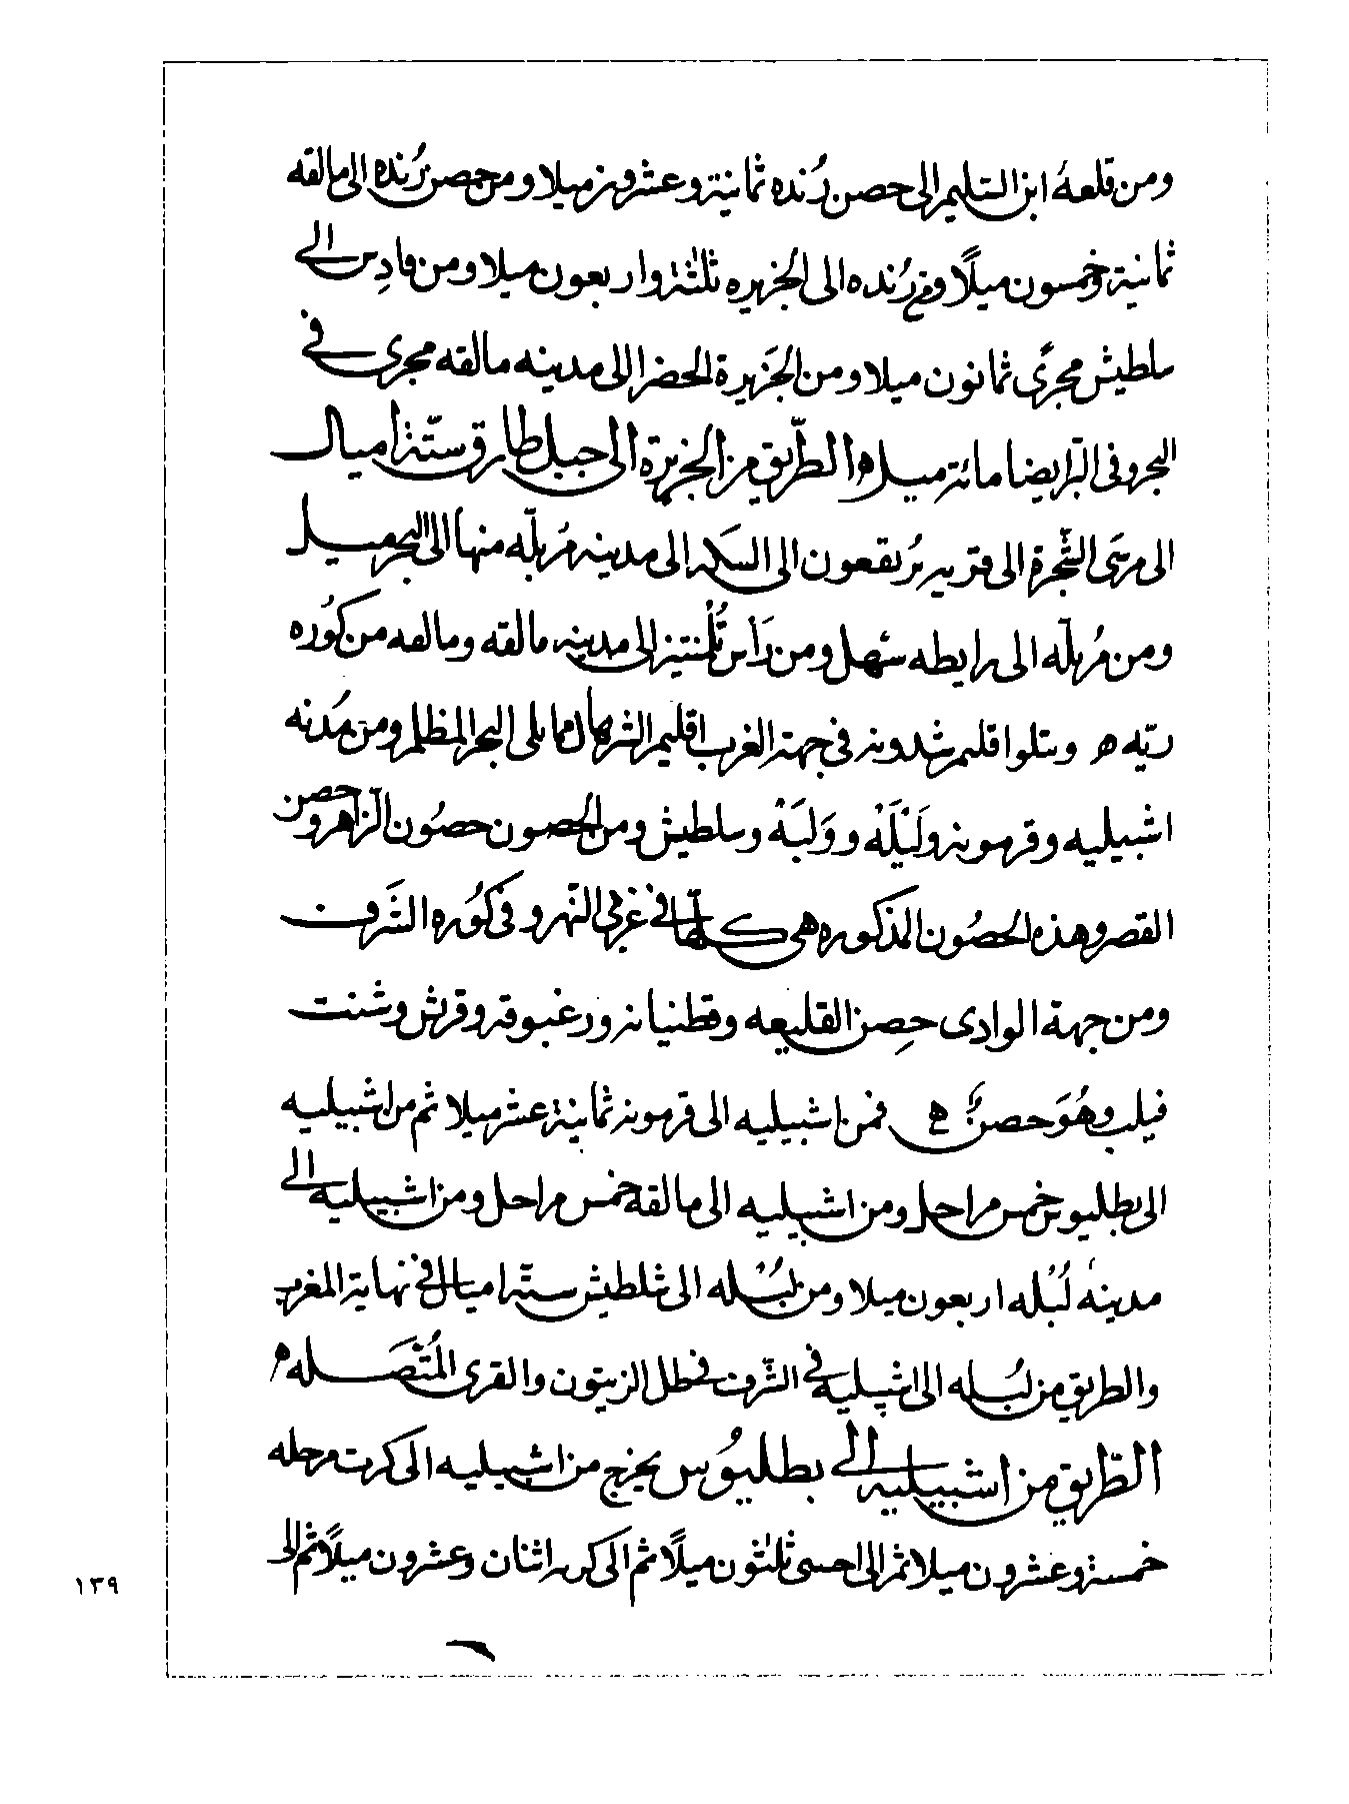 ومن قلعة ابن السليم الى حصن رُنده ثمانية وعشرون ميلا ومن حصن رُنده الى مالقه
ثمانية وخمسون ميلًا ومن رُنده الى الجزيره ثلثة واربعون ميلا ومن قادِس الى
سلطيش مجرًى ثمانون ميلا ومن الجَزيرة الخضرا الى مدينه مالقه مجرى في
البحر وفى البرّ ايضا مائة ميل ه الطّريق من الجزيرة الى جبل طارق ستّة اميال
الى مرسَى الشّجرة الى قرية بُرنقعون الى السكه الى مدينة مُربلّه منها الى البحر ميل
ومن مُربلّه الى رابطه سُهيل ومن رَأس الى مدينه مالقه ومالقه من كُوره
ريّه ه ويتلوا اقليم شدونة في جهة الغرب اقليم الشرف مما يلى البحر المظلم ومن مُدنه
اشبيليه وقرمونة ولَبْلَهْ ووَلَبَهْ وسلطيش ومن الحصون حصُون الزاهر وحصن
القصر وهذه الحصُون المذكوره هى كلّها في غربى النّهر وفى كُوره الشَرف
ومن جهة الوادى حِصن القليعه وقطنيانة ودغبوقة وقرش وشنت
فيلب وهُوَ حصنٌ ه فمن اشبيليه الى قرمونة ثمانية عشر ميلا ثم من اشبيليه
الى بطليوس خمس مراحل ومن اشبيليه الى مالقه خمس مراحل ومن اشبيليه الى
مدينه لَبْله اربعون ميلا ومن لبْله الى شلطيش ستّة اميال في نهاية المغرب
والطريق من لبْله الى اشبيلية في الشّرف في ظل الزيتون والقرى المُتّصَله ه
الطّريق من اشبيليه الى بطليُوس يخرج من اشبيليه الى كرت مرحله
خمسة وعشرون ميلا ثم الى احسى ثلثون ميلًا ثم الى كرر اثنان وعشرون ميلًا ثم الى
١٣٩